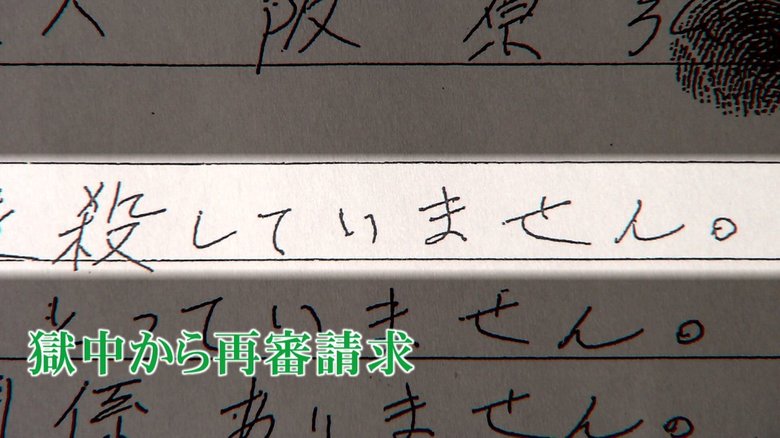 人 阪 原
殺していません。
っていません。
獄中から再審請求
係ありません。